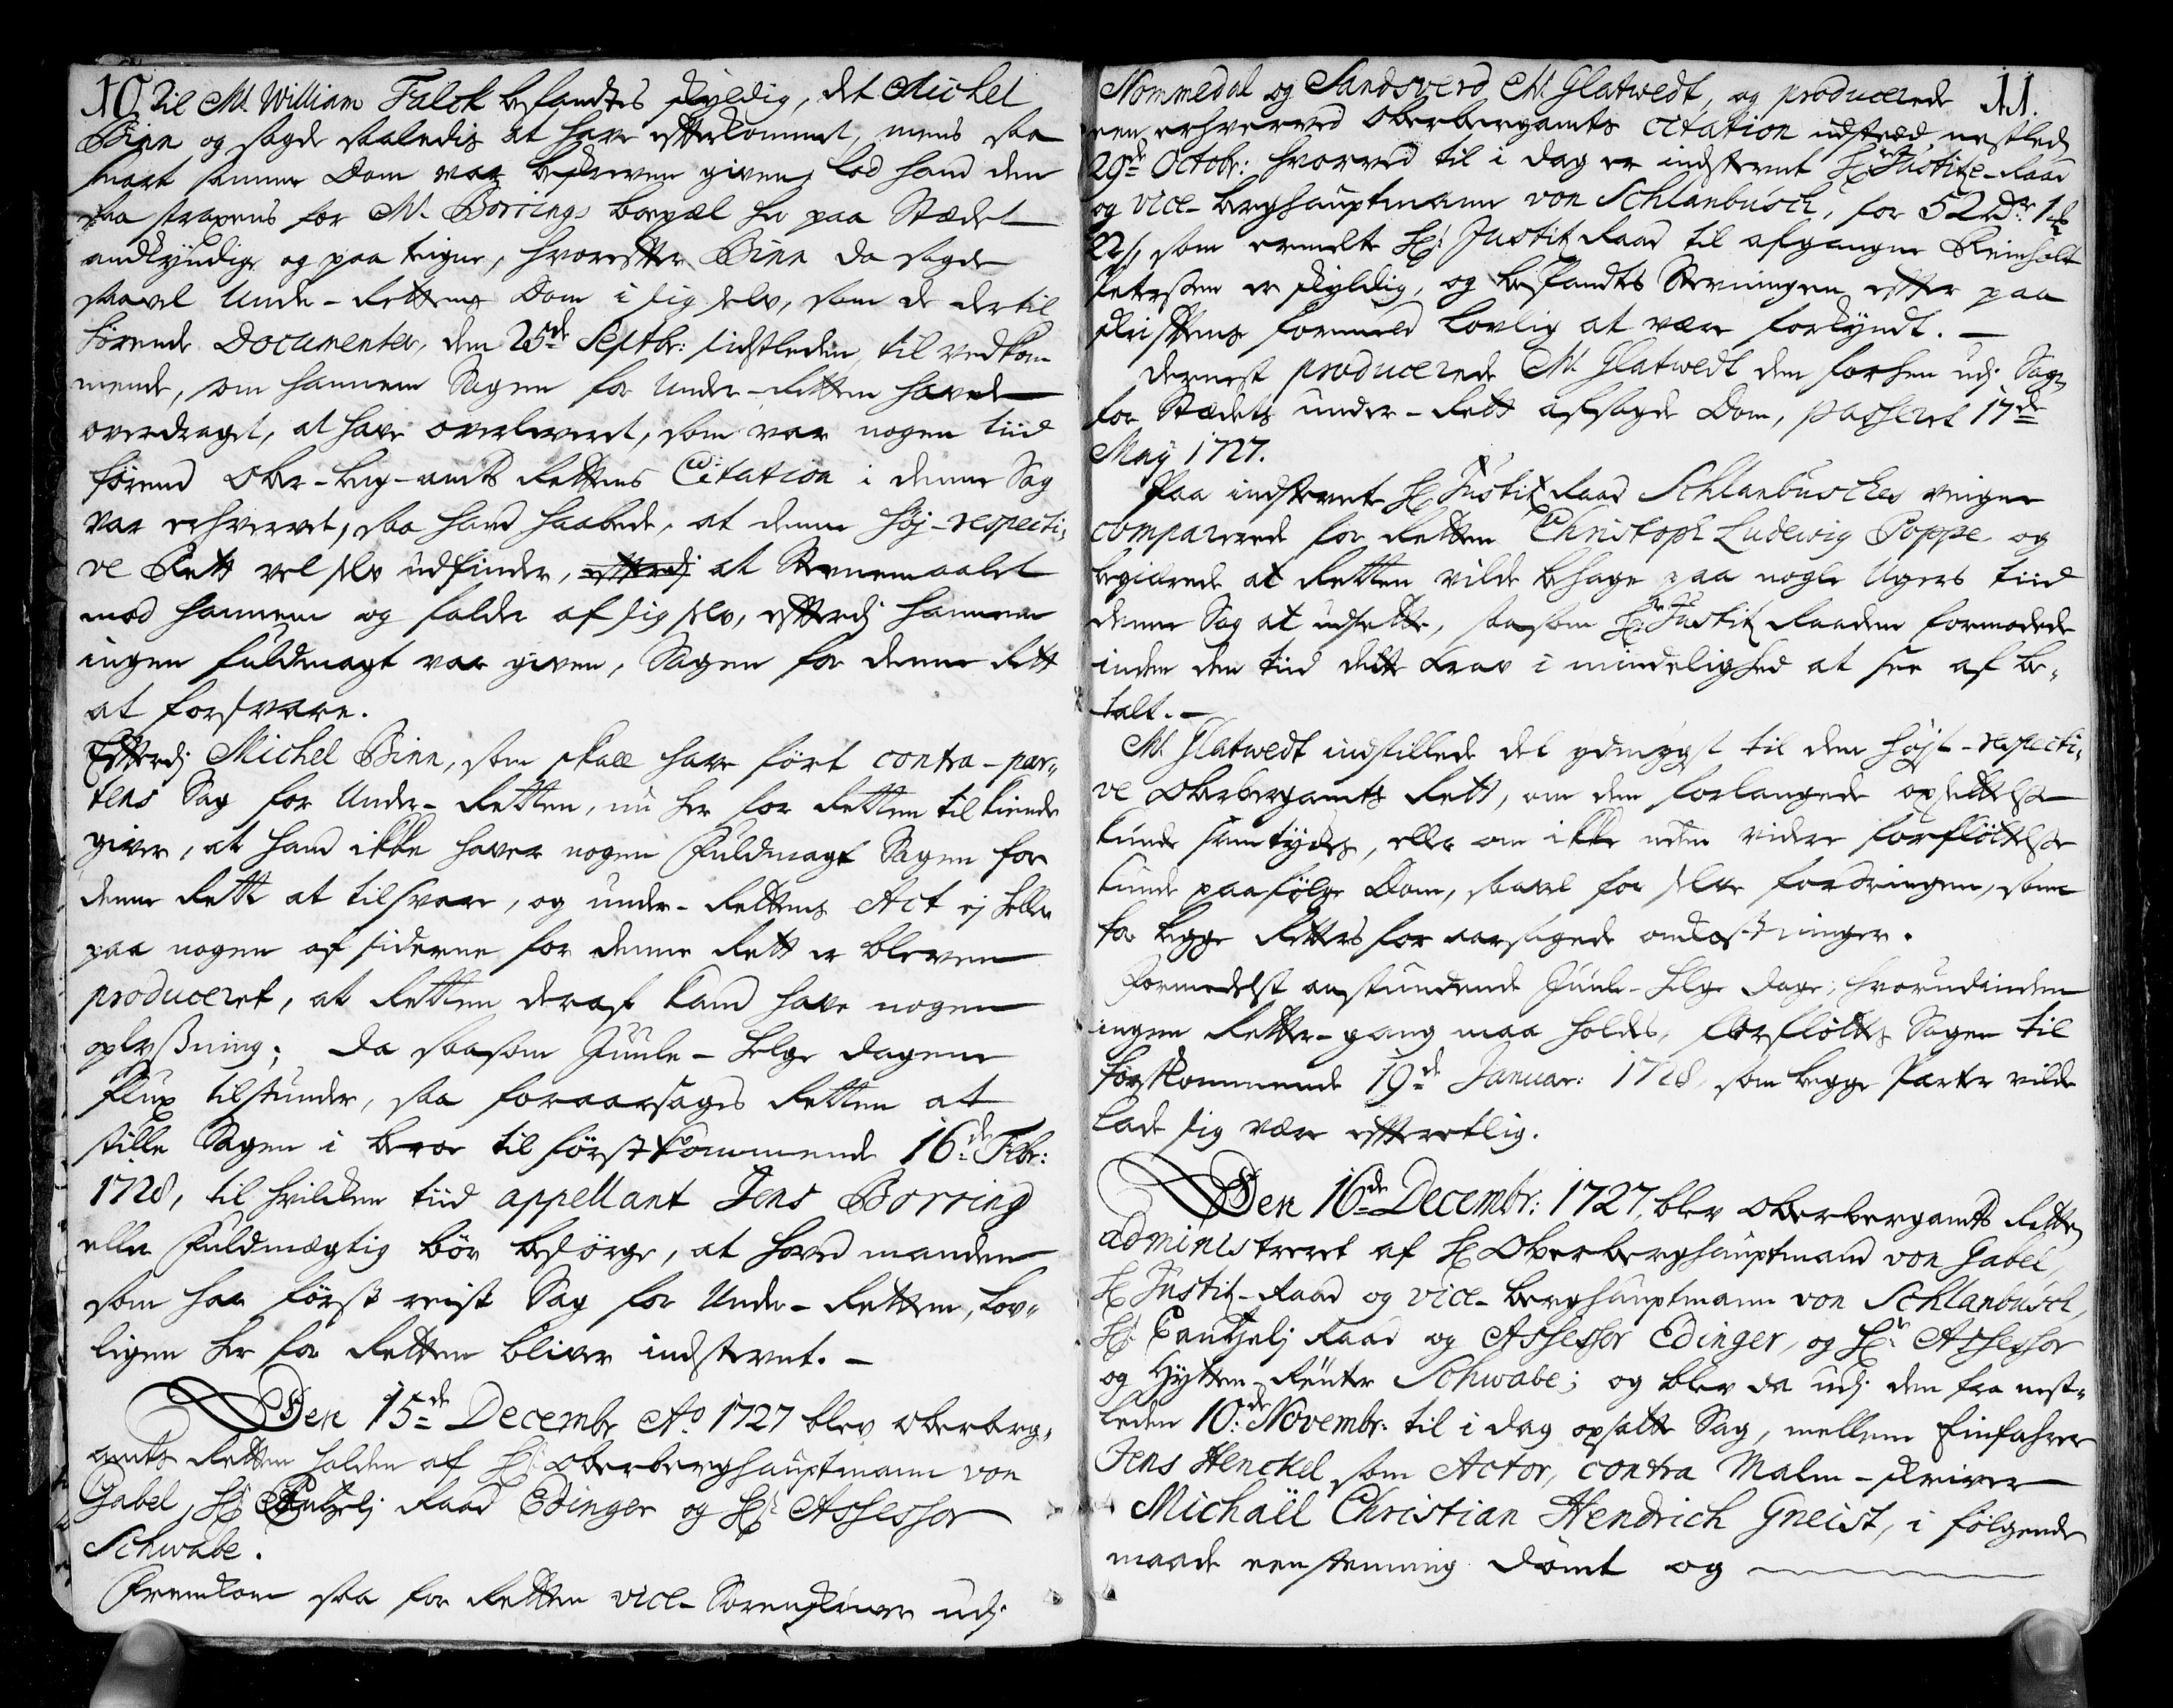 10.
til Mr. William Falck befandtes skyldig, det Michel
Binn og sagde saaledis at have efterkommet, mens saa
snart samme Dom var beskreven given, lod hand den
saa straxens for Mr. Borrings bopæl her paa Stædet
andkyndige og paa teigne, hvorefter Binn da sagde
saavel Under-Rettens Dom i sig selv, som de dertil
hørende Documenter, dem 25de Septbr: sidstleden, til vedkom-
mende, som hannem Sagen for Under-Retten havde
overdraget, at have overleveret, som var nogen tiid
førend Ober-berg-amts Rettens Citation i denne Sag
var erhvervet, saa hand haabede, at denne høj-respecti-
ve Rett vel selv udfinder, efterdj at Stevnemaalet
mod hannem og falder af sig selv, efterdj hannem
ingen fuldmagt var given, Sagen for denne Rett
at forsvare.
Efterdj Michel Binn, som skall have ført contra-par-
tens Sag for Under-Retten, nu her for Retten tilkiende
giver, at hand ikke haver nogen Fuldmagt Sagen for
denne Rett at tilsvare, og under-Rettens Act ej heller
paa nogen af siderne for denne Rett er bleven
produceret, at Retten deraf kand have nogen
oplysning; Da saasom Juule-helge dagene
flux tilstunder, saa foraarsages Retten at
stille Sagen i beroe til førstkommende 16de Febr:
1728, til hvilcken tiid appellant Jens Borring
eller Fuldmægtig bør besørge, at hoved manden
som har først reist Sag for Under-Retten, lov-
ligen her for Retten bliver indstevnt. -
Den 15de Decembr Ao. 1727 blev oberberg-
amts Retten holden af Hr: Oberberghauptmann von
Gabel, Hr Cantzelj Raad Edinger og Hr: Assessor
Schwabe.
Fremkom saa for Retten vice-Sorenskriver udj
11.
Nommedal og Sandsverd Mr. Glatwedt, og producerede
een erhverved Oberbergamts citation udsted nestled
29de Octobr: hvorved til i dag er indstevnt Hr Justitz-Raad
og vice-berghauptmann von Schlanbusch, for 52 Dr 1 ort
22 s, som ermelte Hr: Justitz Raad til afgangne Reinholt
Petersen er skyldig, og befandtes Stevningen efter paa
skriftens formeld lovlig at være forkyndt. -
Dernest producerede Mr. Glatwedt den forhen udj Sag
for Stædets under-Rett afsagde Dom, passeret 17de
May 1727.
Paa indstevnte Hr Justitz Raad Schlanbusches veigne
comparerede for Retten Christoph Ludewig Poppe og
begiærede at Retten vilde behage paa nogle Ugers tiid
denne Sag at udsætte, saasom Hr: Justitz Raaden formodede
inden den tiid dette krav i mindelighed at see af be-
talt. -
Mr. Glatwedt indstillede det ydmygst til den høyt-respecti-
ve Oberbergamts Rett, om den forlangede opsettelse
kunde samtydes, eller om ikke uden videre forfløttelse
kunde paafølge Dom, saavel for selve fordringen, som
for begge Retters foraarsagede omkostninger.
Formedelst anstundende Juule-helge dage, hvorudinden
ingen Retter-gang maa holdes, forfløttes Sagen til
førstkommende 19de Januar: 1728, som begge Parter vilde
lade sig være efterretlig.
Den 16de Decembr: 1727, blev Oberbergamts Retten
administreret af Hr Oberberghauptmand von Gabel,
Hr Justitz-Raad og vice-berghauptmann von Schlanbusch,
Hr: Cantzelj Raad og Assessor Edinger, og Hr: Assessor
og Hytten-Reuter Schwabe; og blev da udj den fra nest-
leden 10de Novembr: til i dag opsatte Sag, mellem Einfahrer
Jens Henckel som Actor, contra Malm-skriver
Michaël Christian Hendrich Gneist, i følgende
maade eenstemmig dømt og